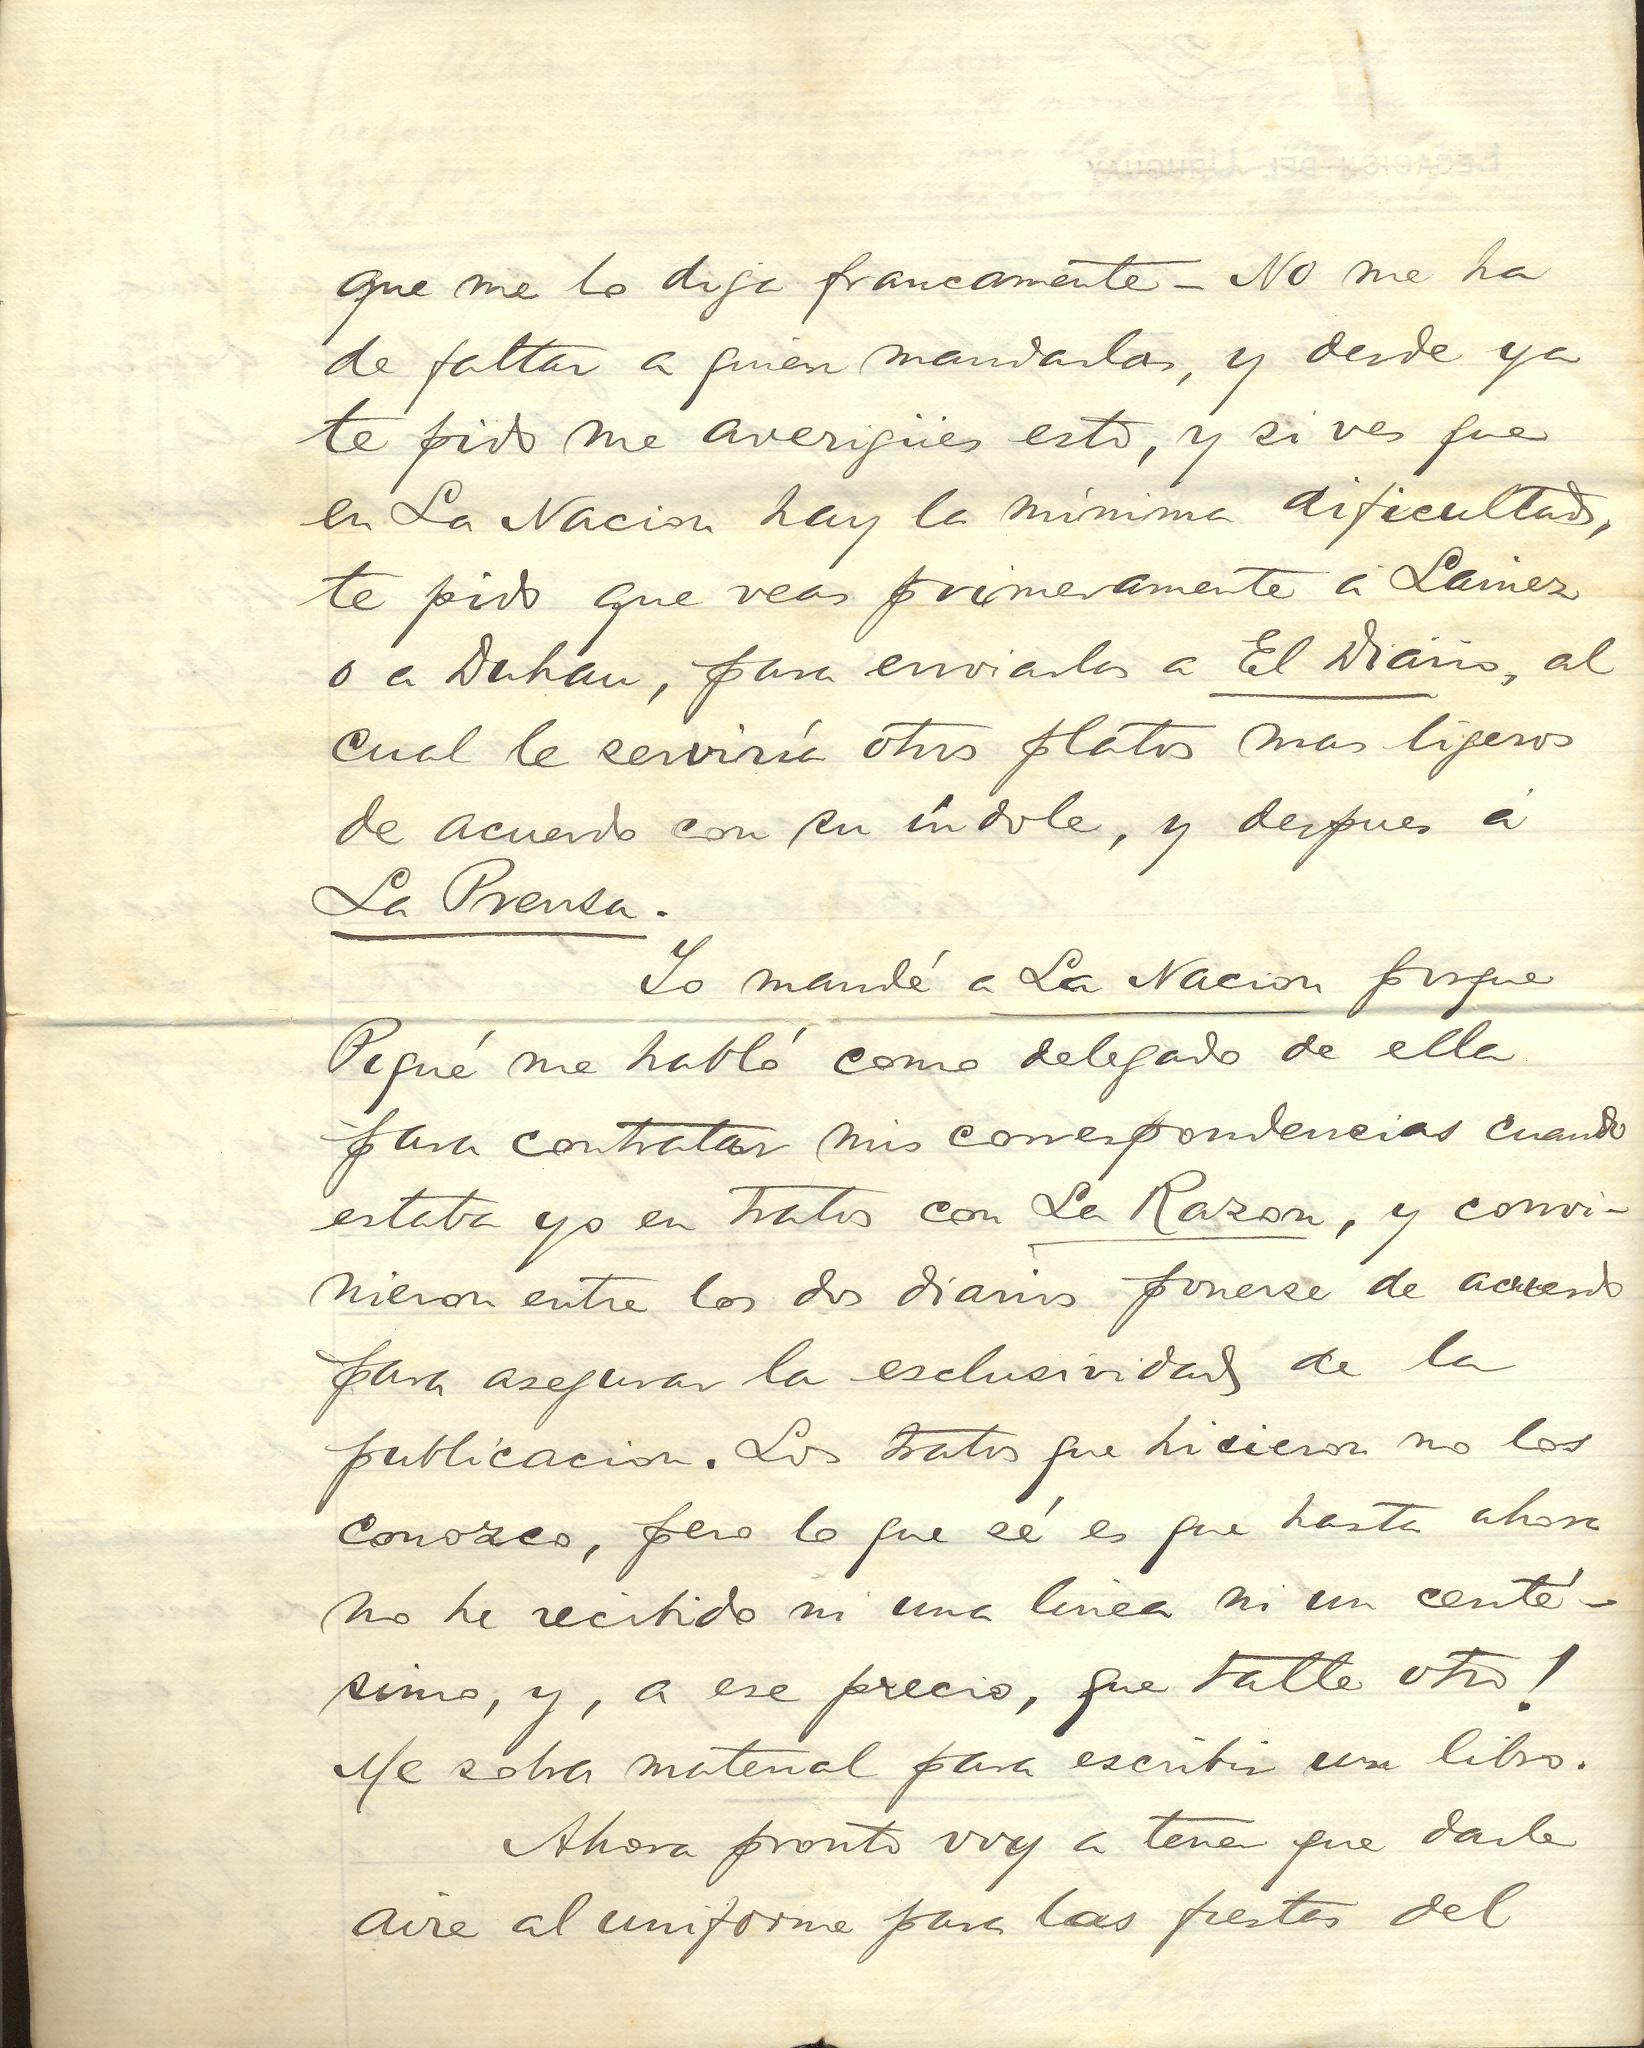 que me lo diga francamente - No me ha
de faltar a quien mandarlas, y desde ya
te pido me averigües esto, y si ves que
en La Nacion hay la mínima dificultad,
te pido que veas primeramente á Lainez
o a Duhau, para enviarlas a El Diario, al
cual le serviría otros platos mas ligeros
de acuerdo con su índole, y despues á
La Prensa.
Yo mandé a La Nacion porque
Piqué me habló como delegado de ella
para contratar mis correspondencias cuando
estaba yo en tratos con La Razon, y convi-
nieron entre los dos diarios ponerse de acuerdo
para asegurar la esclusividad de la
publicacion. Los tratos que hicieron no los
conozco, pero lo que sé es que hasta ahora
no he recibido ni una linea ni un centé-
simo, y, a ese precio, que talle otro!
Me sobra material para escribir un libro.
Ahora pronto voy a tener que darle
aire al uniforme para las fiestas del